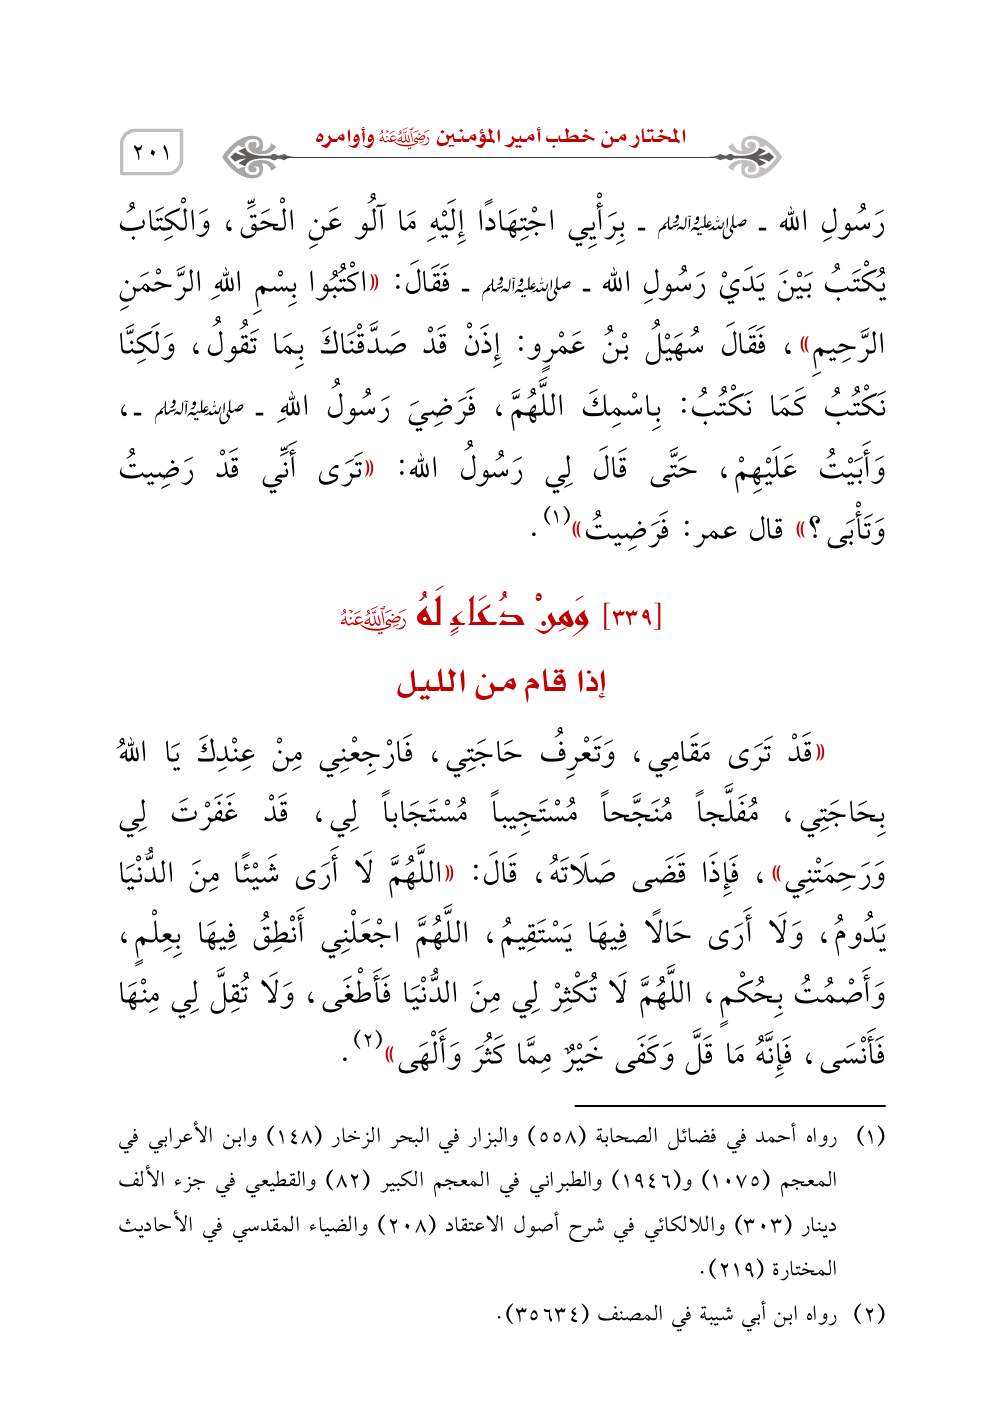 المختار من خطب أمير المؤمنين رَضِيَ اللَّهُ عَنْهُ وأوامره
٢٠١
رَسُولِ الله ـ صلى الله عليه وآله وسلم ـ بِرَأْيِي اجْتِهَادًا إِلَيْهِ مَا آلُو عَنِ الْحَقِّ، وَالْكِتَابُ
يُكْتَبُ بَيْنَ يَدَيْ رَسُولِ الله ـ صلى الله عليه وآله وسلم ـ فَقَالَ: «اكْتُبُوا بِسْمِ اللهِ الرَّحْمَنِ
الرَّحِيمِ»، فَقَالَ سُهَيْلُ بْنُ عَمْرٍو: إِذَنْ قَدْ صَدَّقْنَاكَ بِمَا تَقُولُ، وَلَكِنَّا
نَكْتُبُ كَمَا نَكْتُبُ: بِاسْمِكَ اللَّهُمَّ، فَرَضِيَ رَسُولُ اللهِ ـ صلى الله عليه وآله وسلم ـ،
وَأَبَيْتُ عَلَيْهِمْ، حَتَّى قَالَ لِي رَسُولُ الله: «تَرَى أَنِّي قَدْ رَضِيتُ
وَتَأْبَى؟» قال عمر: فَرَضِيتُ»(١).
[٣٣٩] وَمِنْ دُعَاءٍ لَهُ رَضِيَ اللَّهُ عَنْهُ
إذا قام من الليل
«قَدْ تَرَى مَقَامِي، وَتَعْرِفُ حَاجَتِي، فَارْجِعْنِي مِنْ عِنْدِكَ يَا اللهُ
بِحَاجَتِي، مُفَلَّجاً مُنَجَّحاً مُسْتَجِيباً مُسْتَجَاباً لِي، قَدْ غَفَرْتَ لِي
وَرَحِمَتْنِي»، فَإِذَا قَضَى صَلَاتَهُ، قَالَ: «اللَّهُمَّ لَا أَرَى شَيْئًا مِنَ الدُّنْيَا
يَدُومُ، وَلَا أَرَى حَالًا فِيهَا يَسْتَقِيمُ، اللَّهُمَّ اجْعَلْنِي أَنْطِقُ فِيهَا بِعِلْمٍ،
وَأَصْمُتُ بِحُكْمٍ، اللَّهُمَّ لَا تُكْثِرْ لِي مِنَ الدُّنْيَا فَأَطْغَى، وَلَا تُقِلَّ لِي مِنْهَا
فَأَنْسَى، فَإِنَّهُ مَا قَلَّ وَكَفَى خَيْرٌ مِمَّا كَثُرَ وَأَلْهَى»(٢).
(١) رواه أحمد في فضائل الصحابة (٥٥٨) والبزار في البحر الزخار (١٤٨) وابن الأعرابي في
المعجم (١٠٧٥) و(١٩٤٦) والطبراني في المعجم الكبير (٨٢) والقطيعي في جزء الألف
دينار (٣٠٣) واللالكائي في شرح أصول الاعتقاد (٢٠٨) والضياء المقدسي في الأحاديث
المختارة (٢١٩).
(٢) رواه ابن أبي شيبة في المصنف (٣٥٦٣٤).